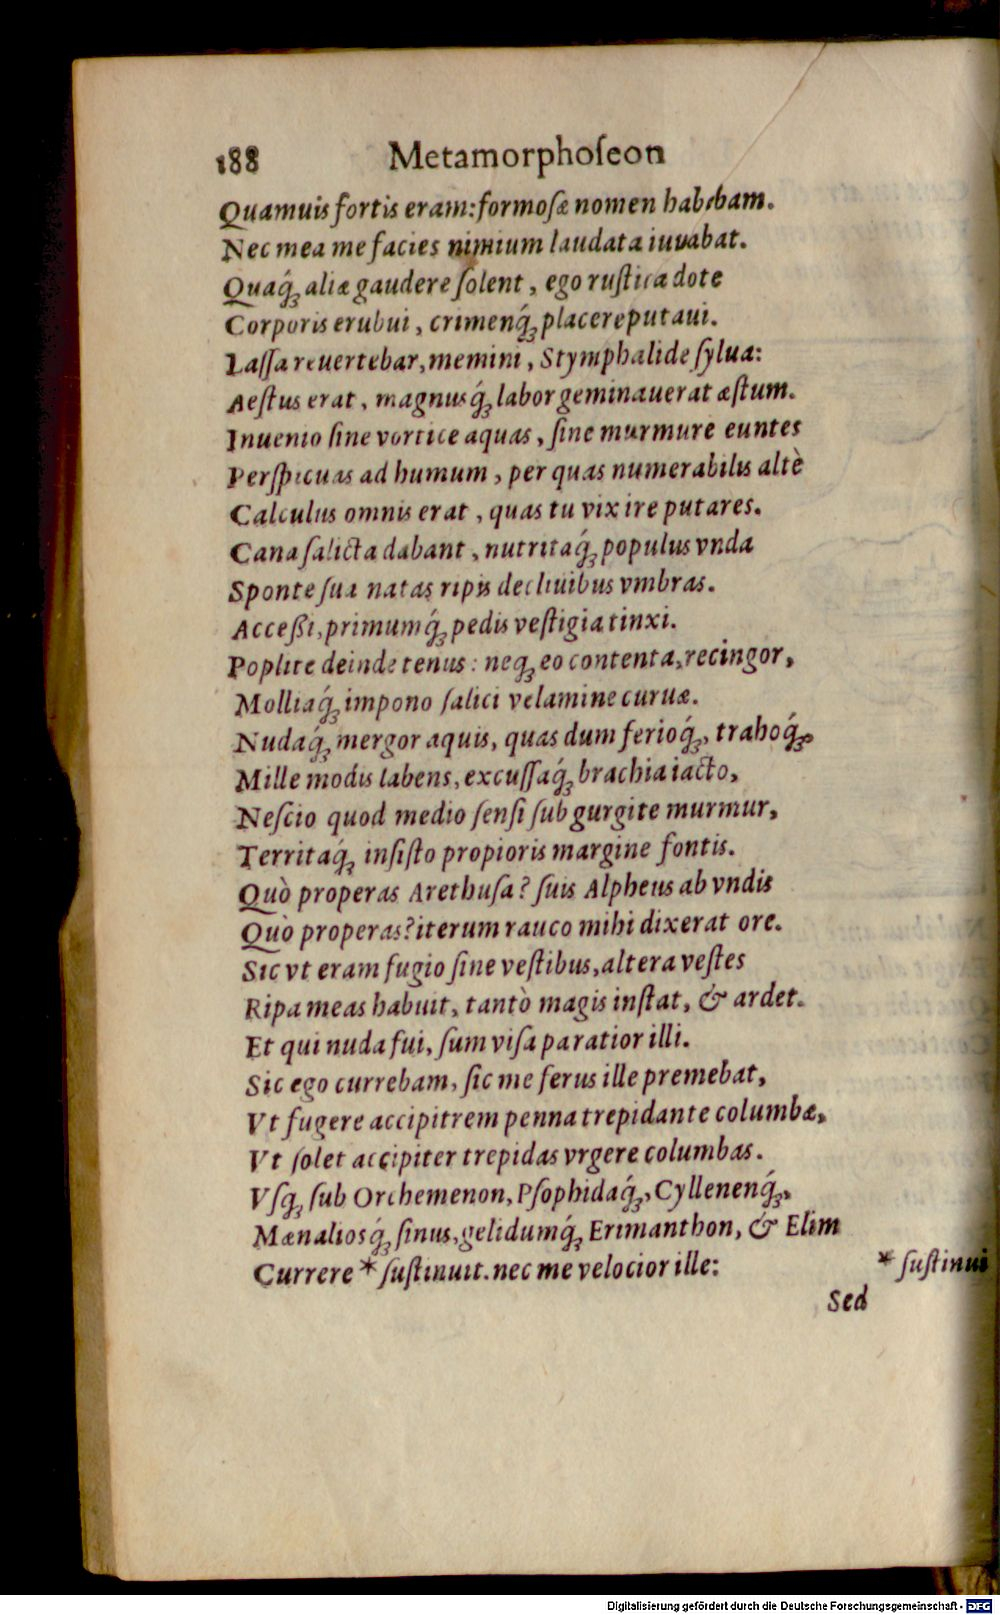 188 Metamorphoſeon
Quamuis fortis eram: formoſæ nomen habebam.
Nec mea me facies nimium laudata iuuabat.
Quaq́ꝫ aliæ gaudere ſolent, ego ruſtica dote
Corporis erubui, crimenq́ꝫ placere putaui.
Laſſa reuertebar, memini, Stymphalide ſylua:
Aeſtus erat, magnusq́ꝫ labor geminauerat æſtum.
Inuenio ſine vortice aquas, ſine murmure euntes
Perſpicuas ad humum, per quas numerabilis altè
Calculus omnis erat, quas tu vix ire putares.
Cana ſalicta dabant, nutritaq́ꝫ populus vnda
Sponte ſua natas ripis decliuibus vmbras.
Acceßi, primumq́ꝫ pedis veſtigia tinxi.
Poplite deinde tenus: neqꝫ eo contenta, recingor,
Molliaq́ꝫ impono ſalici velamine curuæ.
Nudaq́ꝫ mergor aquis, quas dum ferioq́ꝫ, trahoq́ꝫ,
Mille modis labens, excuſſaq́ꝫ brachia iacto,
Neſcio quod medio ſenſi ſub gurgite murmur,
Territaq́ꝫ inſiſto propioris margine fontis.
Quò properas Arethuſa? ſuis Alpheus ab vndis
Quò properas? iterum rauco mihi dixerat ore.
Sic vt eram fugio ſine veſtibus, altera veſtes
Ripa meas habuit, tantò magis inſtat, & ardet.
Et qui nuda fui, ſum viſa paratior illi.
Sic ego currebam, ſic me ferus ille premebat,
Vt fugere accipitrem penna trepidante columbæ,
Vt ſolet accipiter trepidas vrgere columbas.
Vſqꝫ ſub Orchemenon, Pſophidaq́ꝫ, Cyllenenq́ꝫ,
Mænaliosq́ꝫ ſinus, gelidumq́ꝫ Erimanthon, & Elim
Currere * ſuſtinuit. nec me velocior ille: * ſuſtinui
Sed
Digitalisierung gefördert durch die Deutsche Forschungsgemeinschaft - DFG